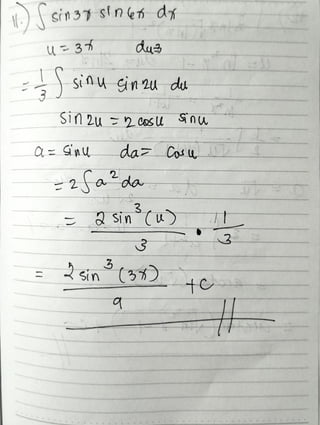 11.) ∫ sin3x sin6x dx
u = 3x du3
= 1/3 ∫ sinu sin2u du
sin2u = 2 cosu sinu
a = sinu da = cosu
= 2∫a²da
= 2 sin³(u)/3 • 1/3
= 2 sin³(3x)/9 + C